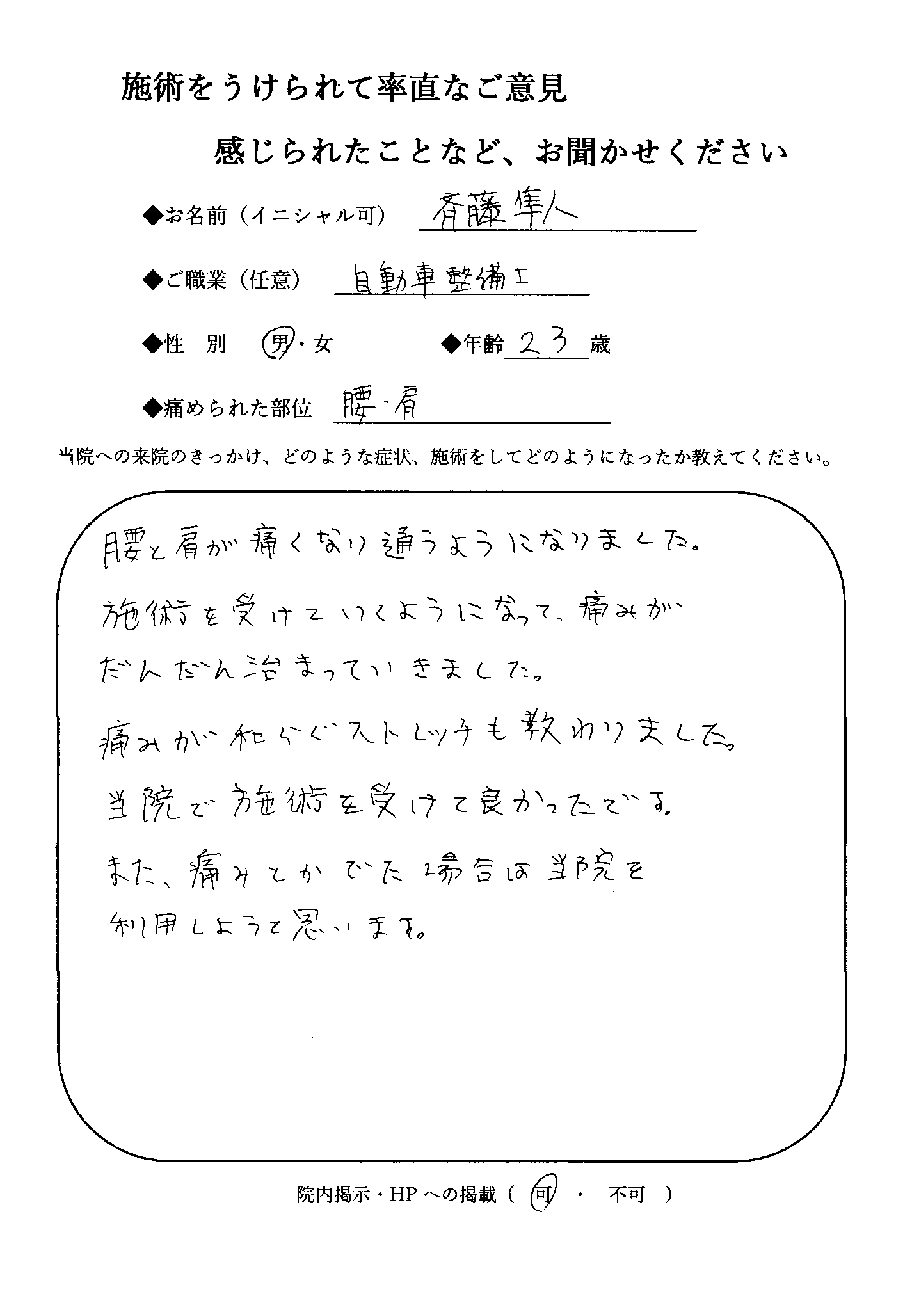 施術をうけられて率直なご意見
感じられたことなど、お聞かせください
◆お名前（イニシャル可） 斉藤隼人
◆ご職業（任意） 自動車整備工
◆性 別 男・女 ◆年齢 23 歳
◆痛められた部位 腰・肩
当院への来院のきっかけ、どのような症状、施術をしてどのようになったか教えてください。
腰と肩が痛くなり通うようになりました。
施術を受けていくようになって、痛みが
だんだん治まっていきました。
痛みが和らぐストレッチも教わりました。
当院で施術を受けて良かったです。
また、痛みとかでた場合は当院を
利用しようと思います。
院内掲示・HPへの掲載（ 可 ・ 不可 ）